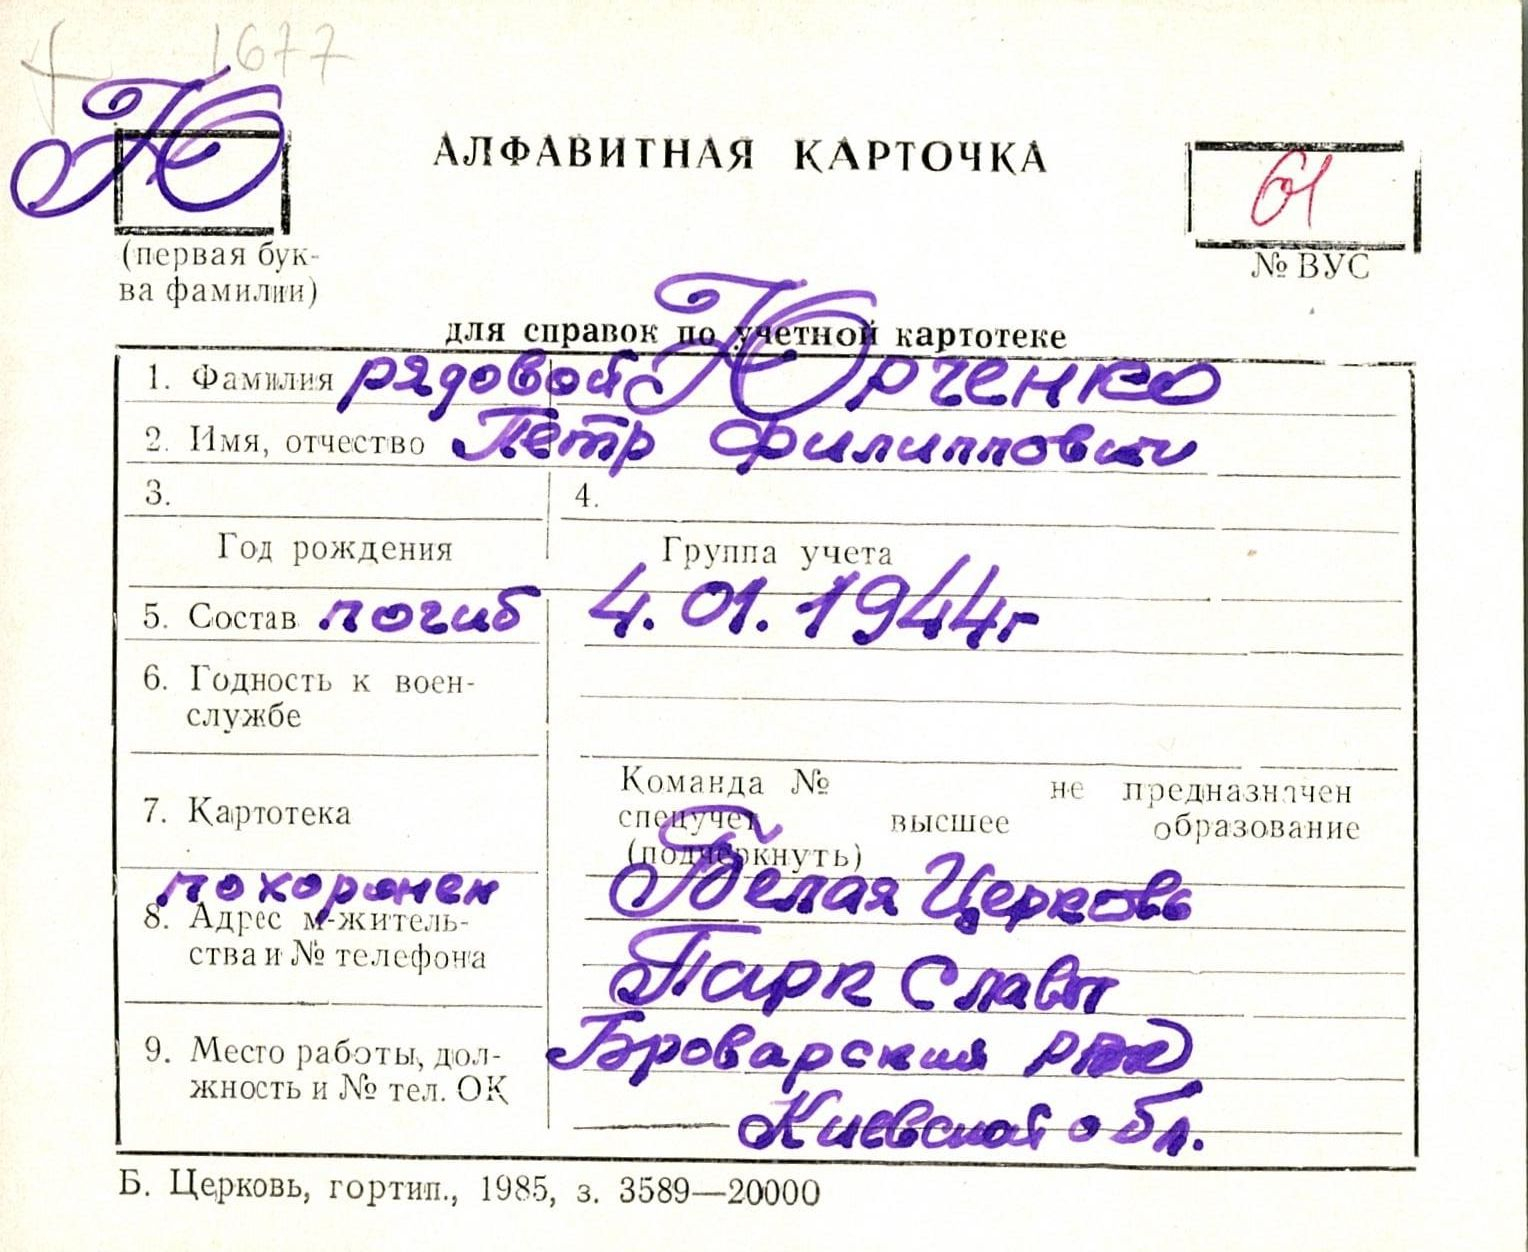 1677
Ю
АЛФАВИТНАЯ КАРТОЧКА
61
(первая бук-
ва фамилии)
№ ВУС
для справок по учетной картотеке
1. Фамилия рядовой Юрченко
2. Имя, отчество Петр Филиппович
3.
4.
Год рождения
Группа учета
5. Состав погиб 4.01.1944г
6. Годность к воен-
службе
7. Картотека
Команда № не предназначен
спецучет высшее образование
(подчеркнуть)
похоронен Белая Церковь
8. Адрес м-житель-
ства и № телефона
Парк Славы
9. Место работы, дол-
жность и № тел. ОК
Броварский
Киевской обл.
Б. Церковь, гортип., 1985, з. 3589—20000